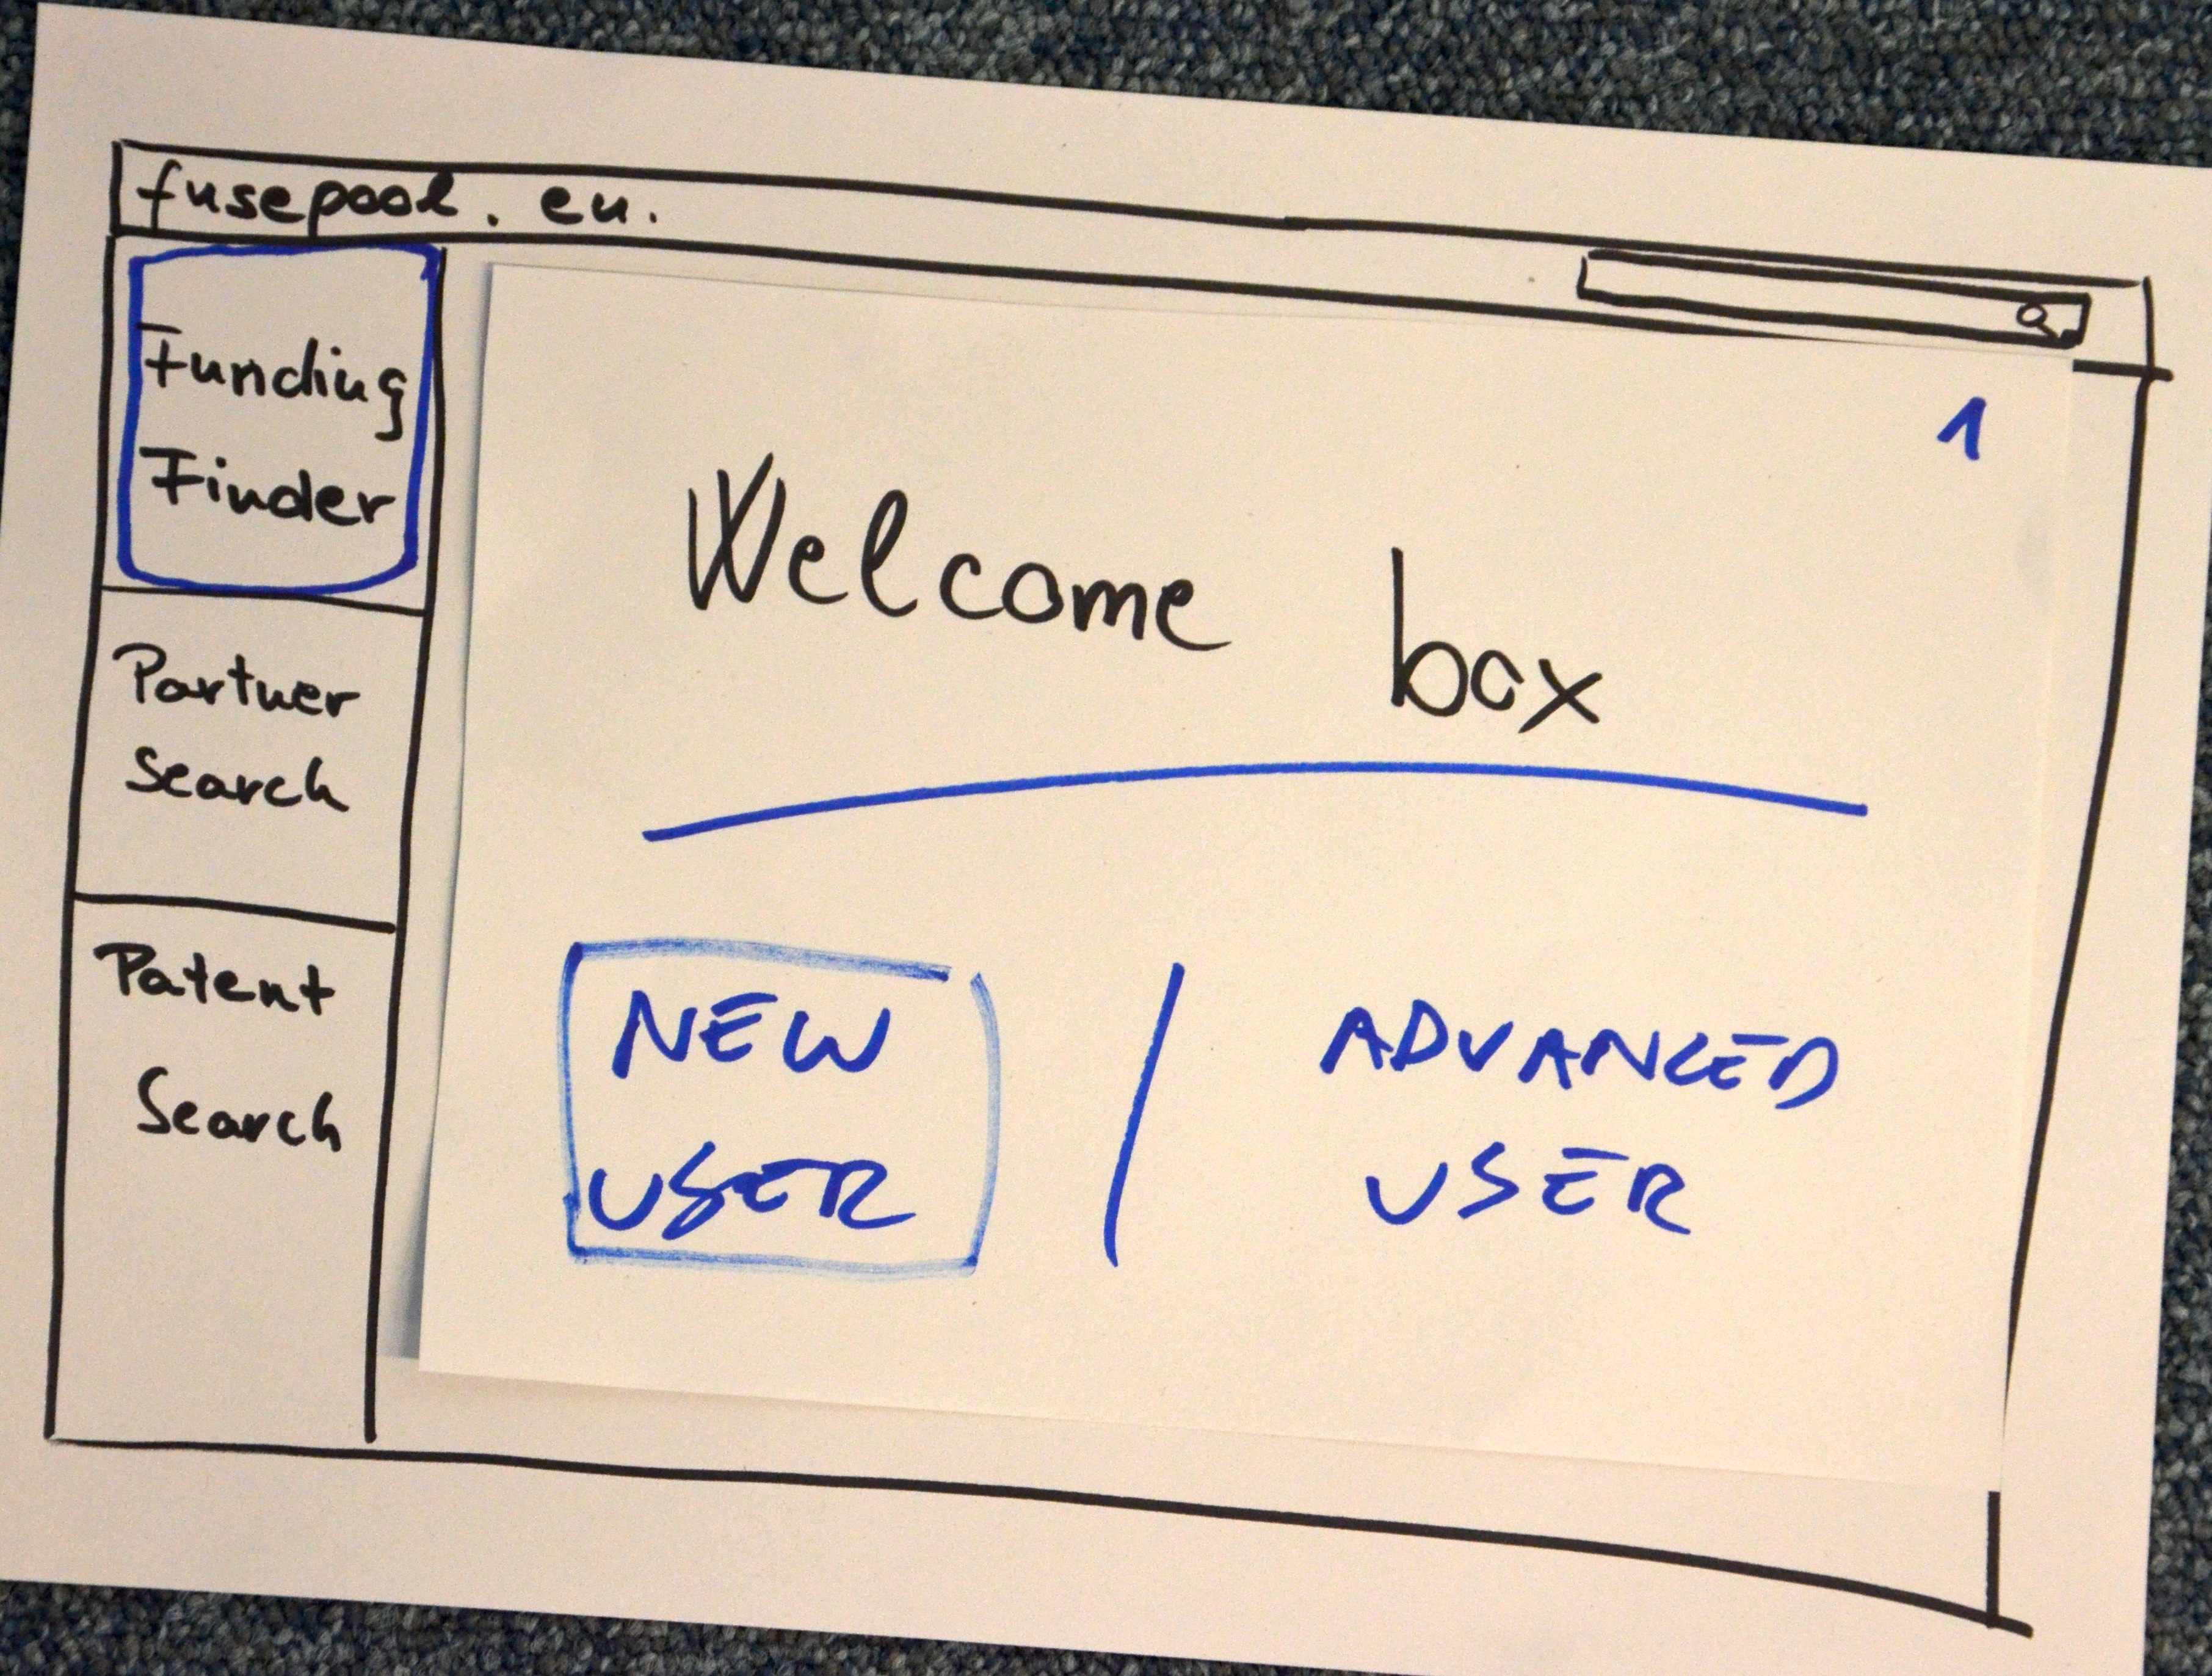 fusepool.eu.
Funding
Finder
Partner
Search
Patent
Search
1
Welcome box
NEW
USER
ADVANCED
USER